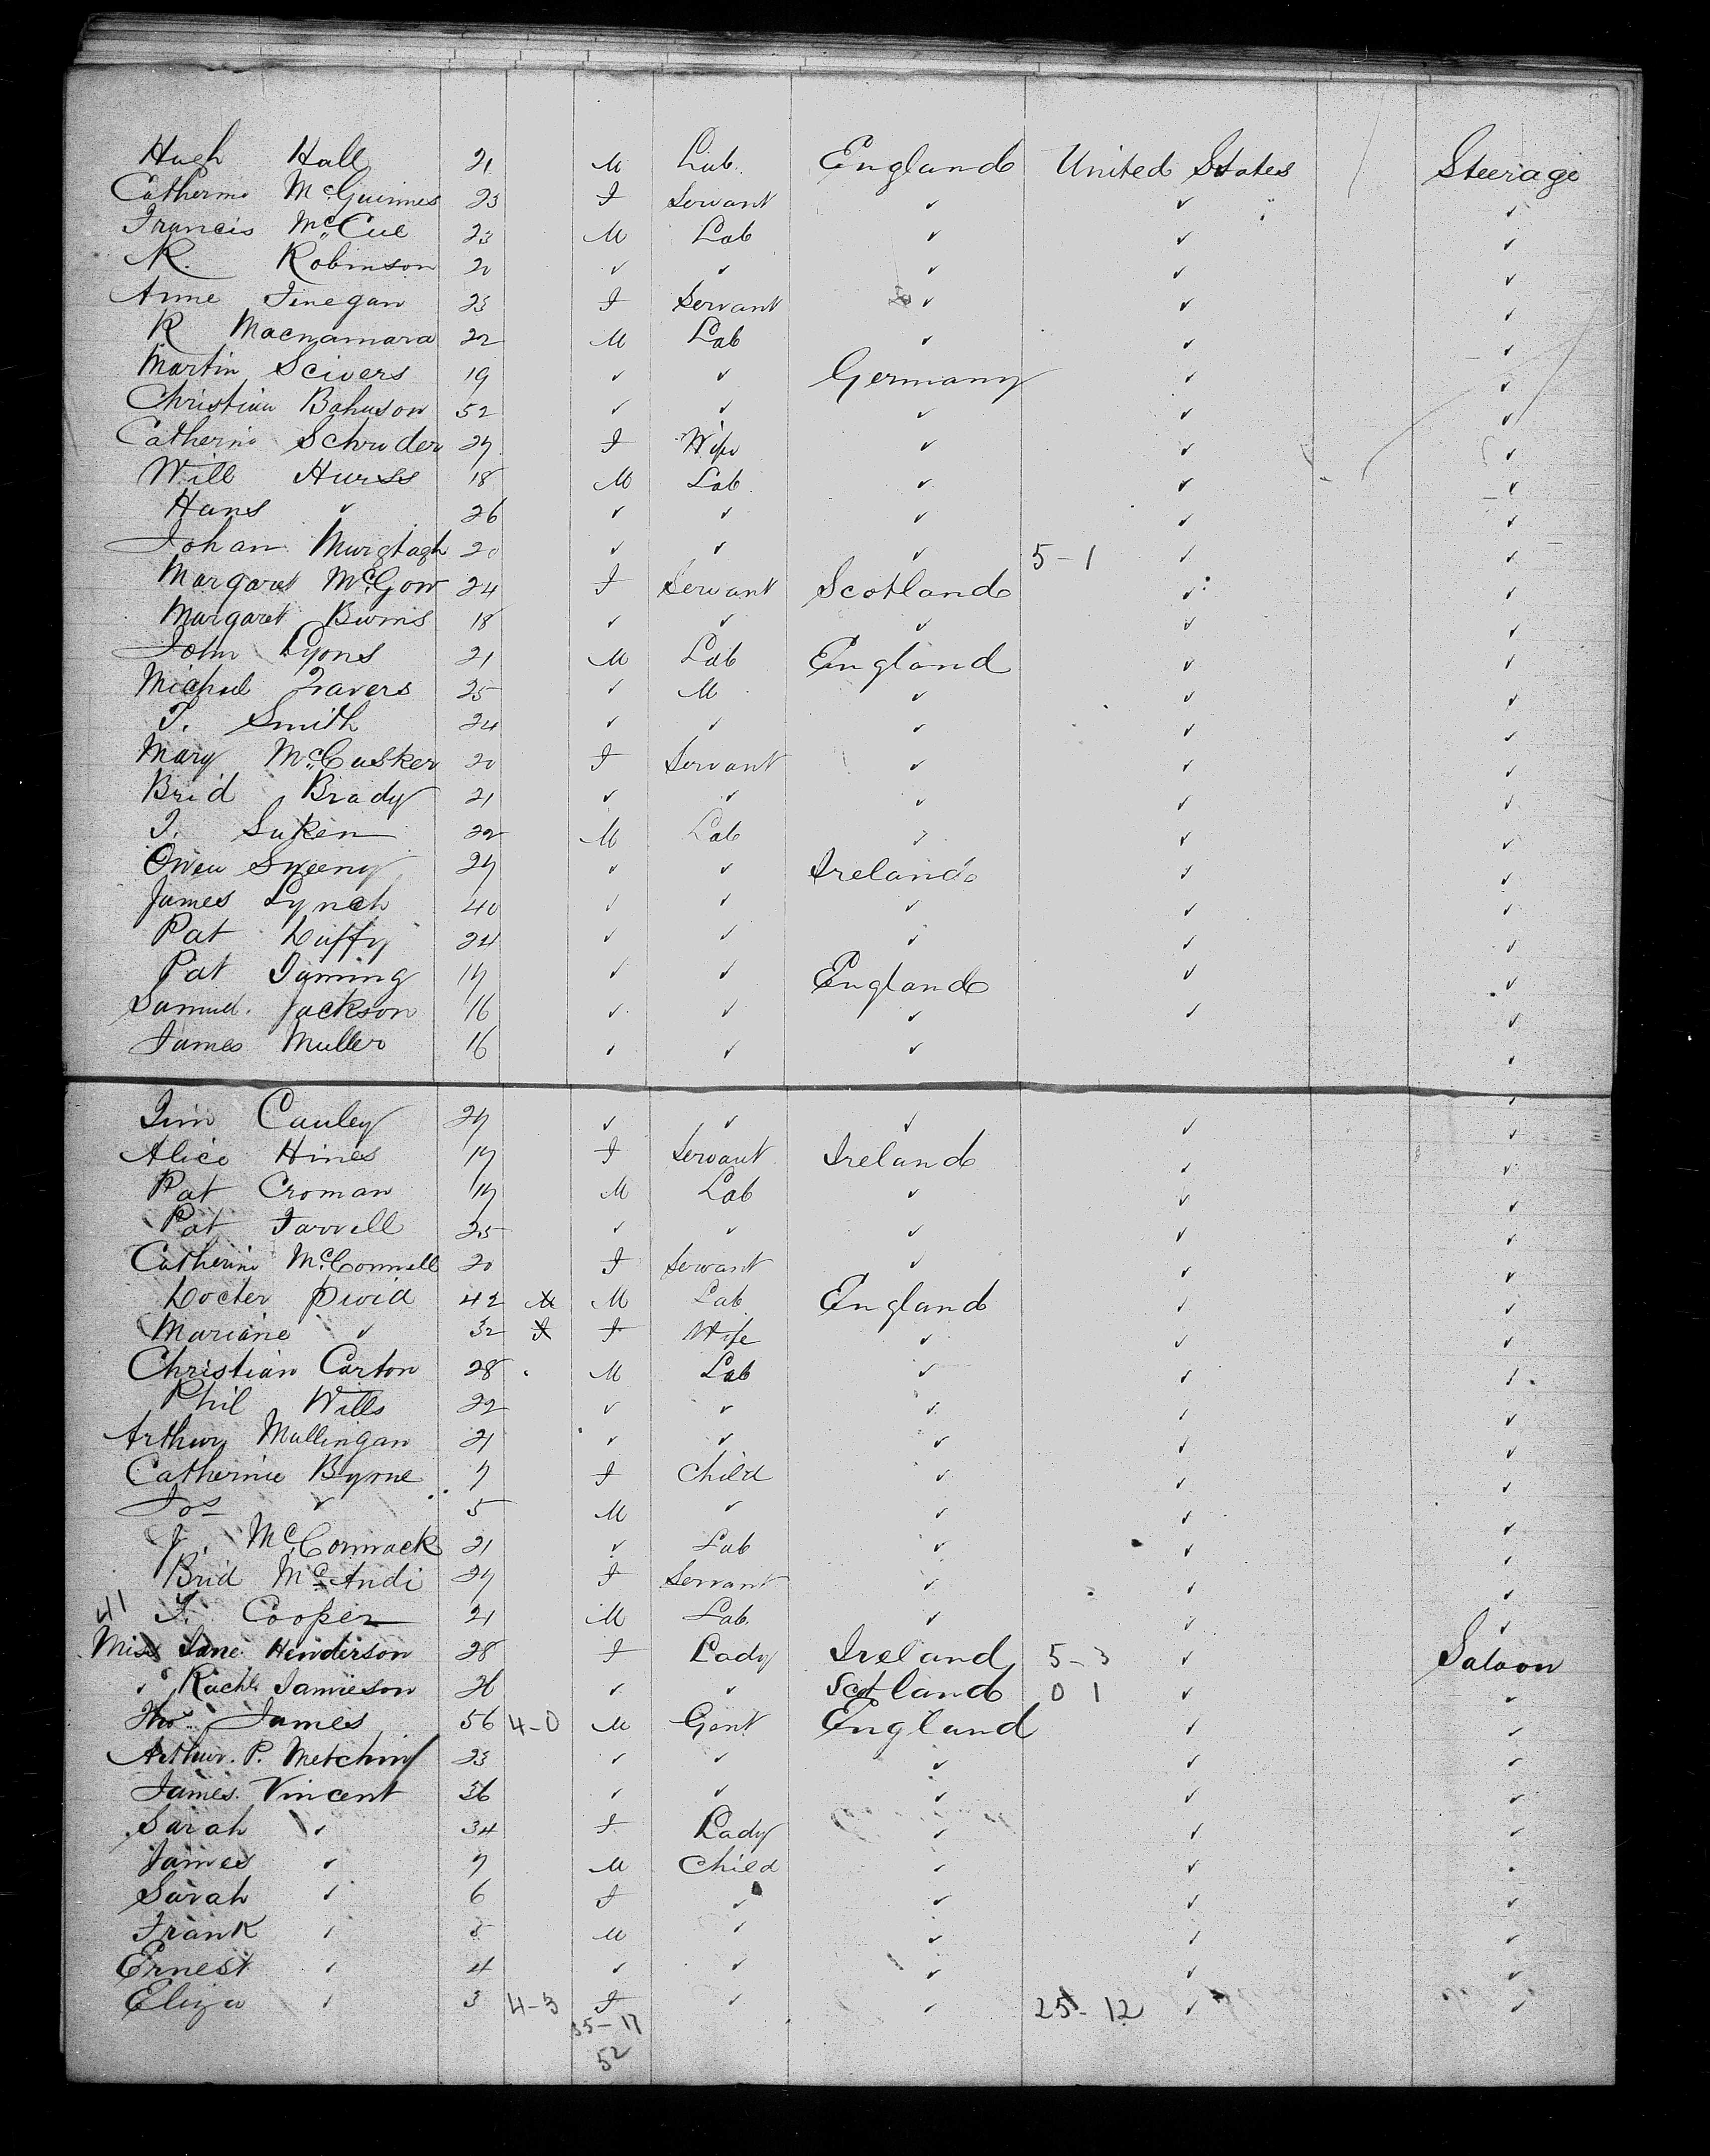 Hugh Hall 21 M Lab. England United States Steerage
Catherine McGuinnes 23 F Servant ✓ ✓ ✓
Francis McCue 23 M Lab ✓ ✓ ✓
R. Robinson 20 ✓ ✓ ✓ ✓ ✓
Anne Finegan 23 F Servant ✓ ✓ ✓
R Macnamara 22 M Lab ✓ ✓ ✓
Martin Scivers 19 ✓ ✓ Germany ✓ ✓
Christian Bahnson 52 ✓ ✓ ✓ ✓ ✓
Catherine Schroder 27 F Wife ✓ ✓ ✓
Will Hurss 18 M Lab. ✓ ✓ ✓
Hans ✓ 26 ✓ ✓ ✓ ✓ ✓
Johan Murgtagh 20 ✓ ✓ ✓ 5-1 ✓ ✓
Margaret McGow 24 F Servant Scotland ✓ ✓
Margaret Burns 18 ✓ ✓ ✓ ✓ ✓
John Lyons 21 M Lab England ✓ ✓
Michael Travers 25 ✓ M ✓ ✓ ✓
T. Smith 24 ✓ ✓ ✓ ✓ ✓
Mary McCusker 20 F Servant ✓ ✓ ✓
Brid Brady 21 ✓ ✓ ✓ ✓ ✓
T. Suken 22 M Lab ✓ ✓ ✓
Owen Sweeny 27 ✓ ✓ Ireland ✓ ✓
James Lynch 40 ✓ ✓ ✓ ✓ ✓
Pat Duffy 24 ✓ ✓ ✓ ✓ ✓
Pat 17 ✓ ✓ England ✓ ✓
Samuel Jackson 16 ✓ ✓ ✓ ✓ ✓
James Muller 16 ✓ ✓ ✓ ✓
Jim Cauley 27 ✓ ✓ ✓ ✓ ✓
Alice Hines 17 F Servant Ireland ✓ ✓
Pat Croman 17 M Lab ✓ ✓ ✓
Pat Farrell 25 ✓ ✓ ✓ ✓ ✓
Catherine McConnell 20 F Servant ✓ ✓ ✓
Docter 42 M M Lab England ✓ ✓
Mariane ✓ 32 F F Wife ✓ ✓ ✓
Christian Carton 28 M Lab ✓ ✓ ✓
Phil Wills 22 ✓ ✓ ✓ ✓ ✓
Arthur Mullingan 21 ✓ ✓ ✓ ✓ ✓
Catherine Byrne 7 F Child ✓ ✓ ✓
Jos ✓ 5 M ✓ ✓ ✓ ✓
J. McCormack 21 ✓ Lab ✓ ✓ ✓
Brid McAndi 27 F Servant ✓ ✓ ✓
41 T. Cooper 21 M Lab. ✓ ✓ ✓
Miss Jane Henderson 28 F Lady Ireland 5-3 ✓ Saloon
✓ Rachl Jamieson 26 ✓ ✓ Scotland 0 1 ✓ ✓
Thos. James 56 4-0 M Gent England ✓ ✓
Arthur. P. Metchim 23 ✓ ✓ ✓ ✓ ✓
James Vincent 36 ✓ ✓ ✓ ✓ ✓
Sarah ✓ 34 F Lady ✓ ✓ ✓
James ✓ 7 M Child ✓ ✓ ✓
Sarah ✓ 6 F ✓ ✓ ✓ ✓
Frank ✓ 5 M ✓ ✓ ✓ ✓
Ernest ✓ 4 ✓ ✓ ✓ ✓ ✓
Eliza ✓ 3 4-3 F ✓ ✓ 25-12 ✓ ✓
35-17
52